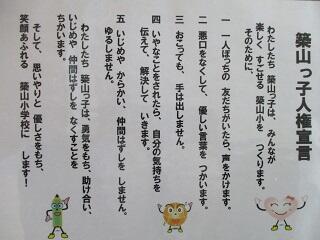 築山っ子人権宣言
わたしたち 築山っ子は、みんなが
楽しく すごせる 築山小を つくります。
そのために、
一 一人ぼっちの 友だちがいたら、声をかけます。
二 悪口をなくして、優しい言葉を つかいます。
三 おこっても、手は出しません。
四 いやなことをされたら、自分の気持ちを
伝えて、解決して いきます。
五 いじめや からかい、仲間はずしを しません。
ゆるしません。
わたしたち 築山っ子は、勇気をもち、助け合い、
いじめや 仲間はずしを なくすことを
ちかいます。
そして、思いやりと 優しさをもち、
笑顔あふれる 築山小学校に します！